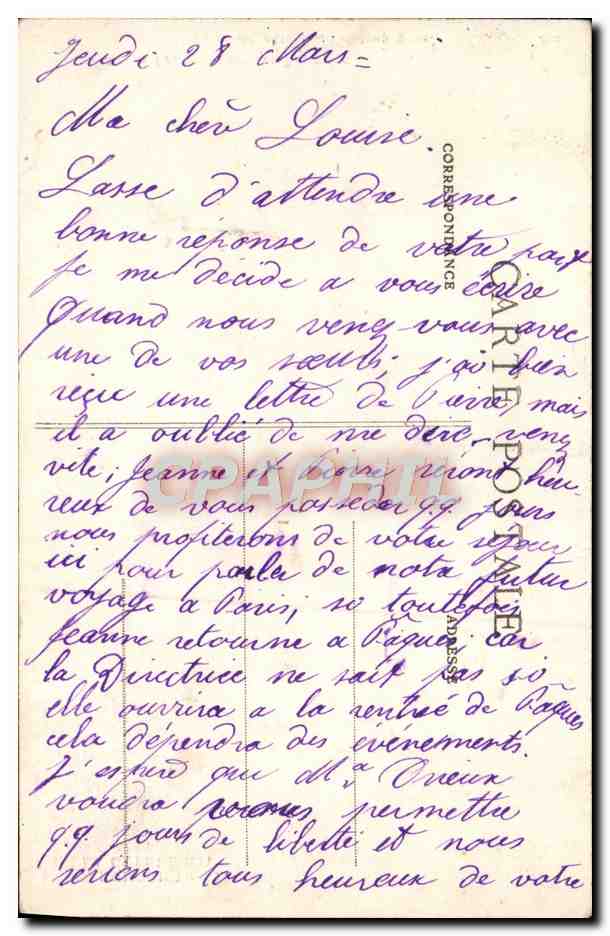 Jeudi 28 Mars =
Ma chère Louise.
Lasse d'attendre une
bonne réponse de votre part
je me décide a vous écrire
Quand nous venez-vous avec
une de vos sœurs; j'ai bien
reçu une lettre de Pierre, mais
il a oublié de me dire. venez
vite; Jeanne et seront heu-
reux de vous posseder qq jours
nous profiterons de votre sejour
ici pour parler de notre futur
voyage a Paris; si toutefois
Jeanne retourne a Pâques car
la Directrice ne sait pas si
elle ouvrira a la rentrée de Pâques
cela dépendra des événements.
J'espère que Mme Drieux
voudra permettre
qq jours de liberté et nous
serions tous heureux de votre
CORRESPONDANCE
CARTE POSTALE
ADRESSE
CPAPHIL